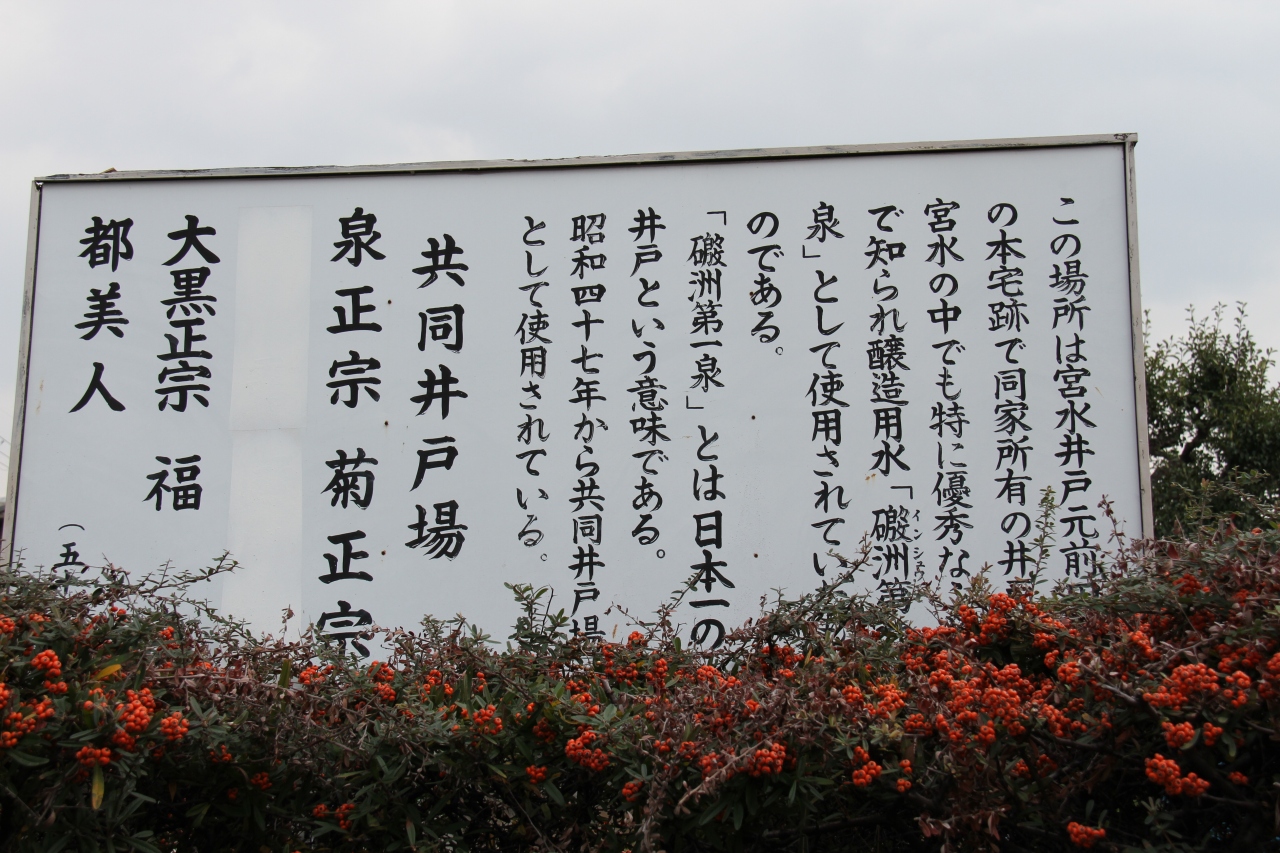 この場所は宮水井戸元前
の本宅跡で同家所有の井
宮水の中でも特に優秀な
で知られ醸造用水「磤洲第
インシュウ
泉」として使用されてい
のである。
「磤洲第一泉」とは日本一の
井戸という意味である。
昭和四十七年から共同井戸場
として使用されている。
共同井戸場
泉正宗 菊正宗
大黒正宗 福
都美人
（五